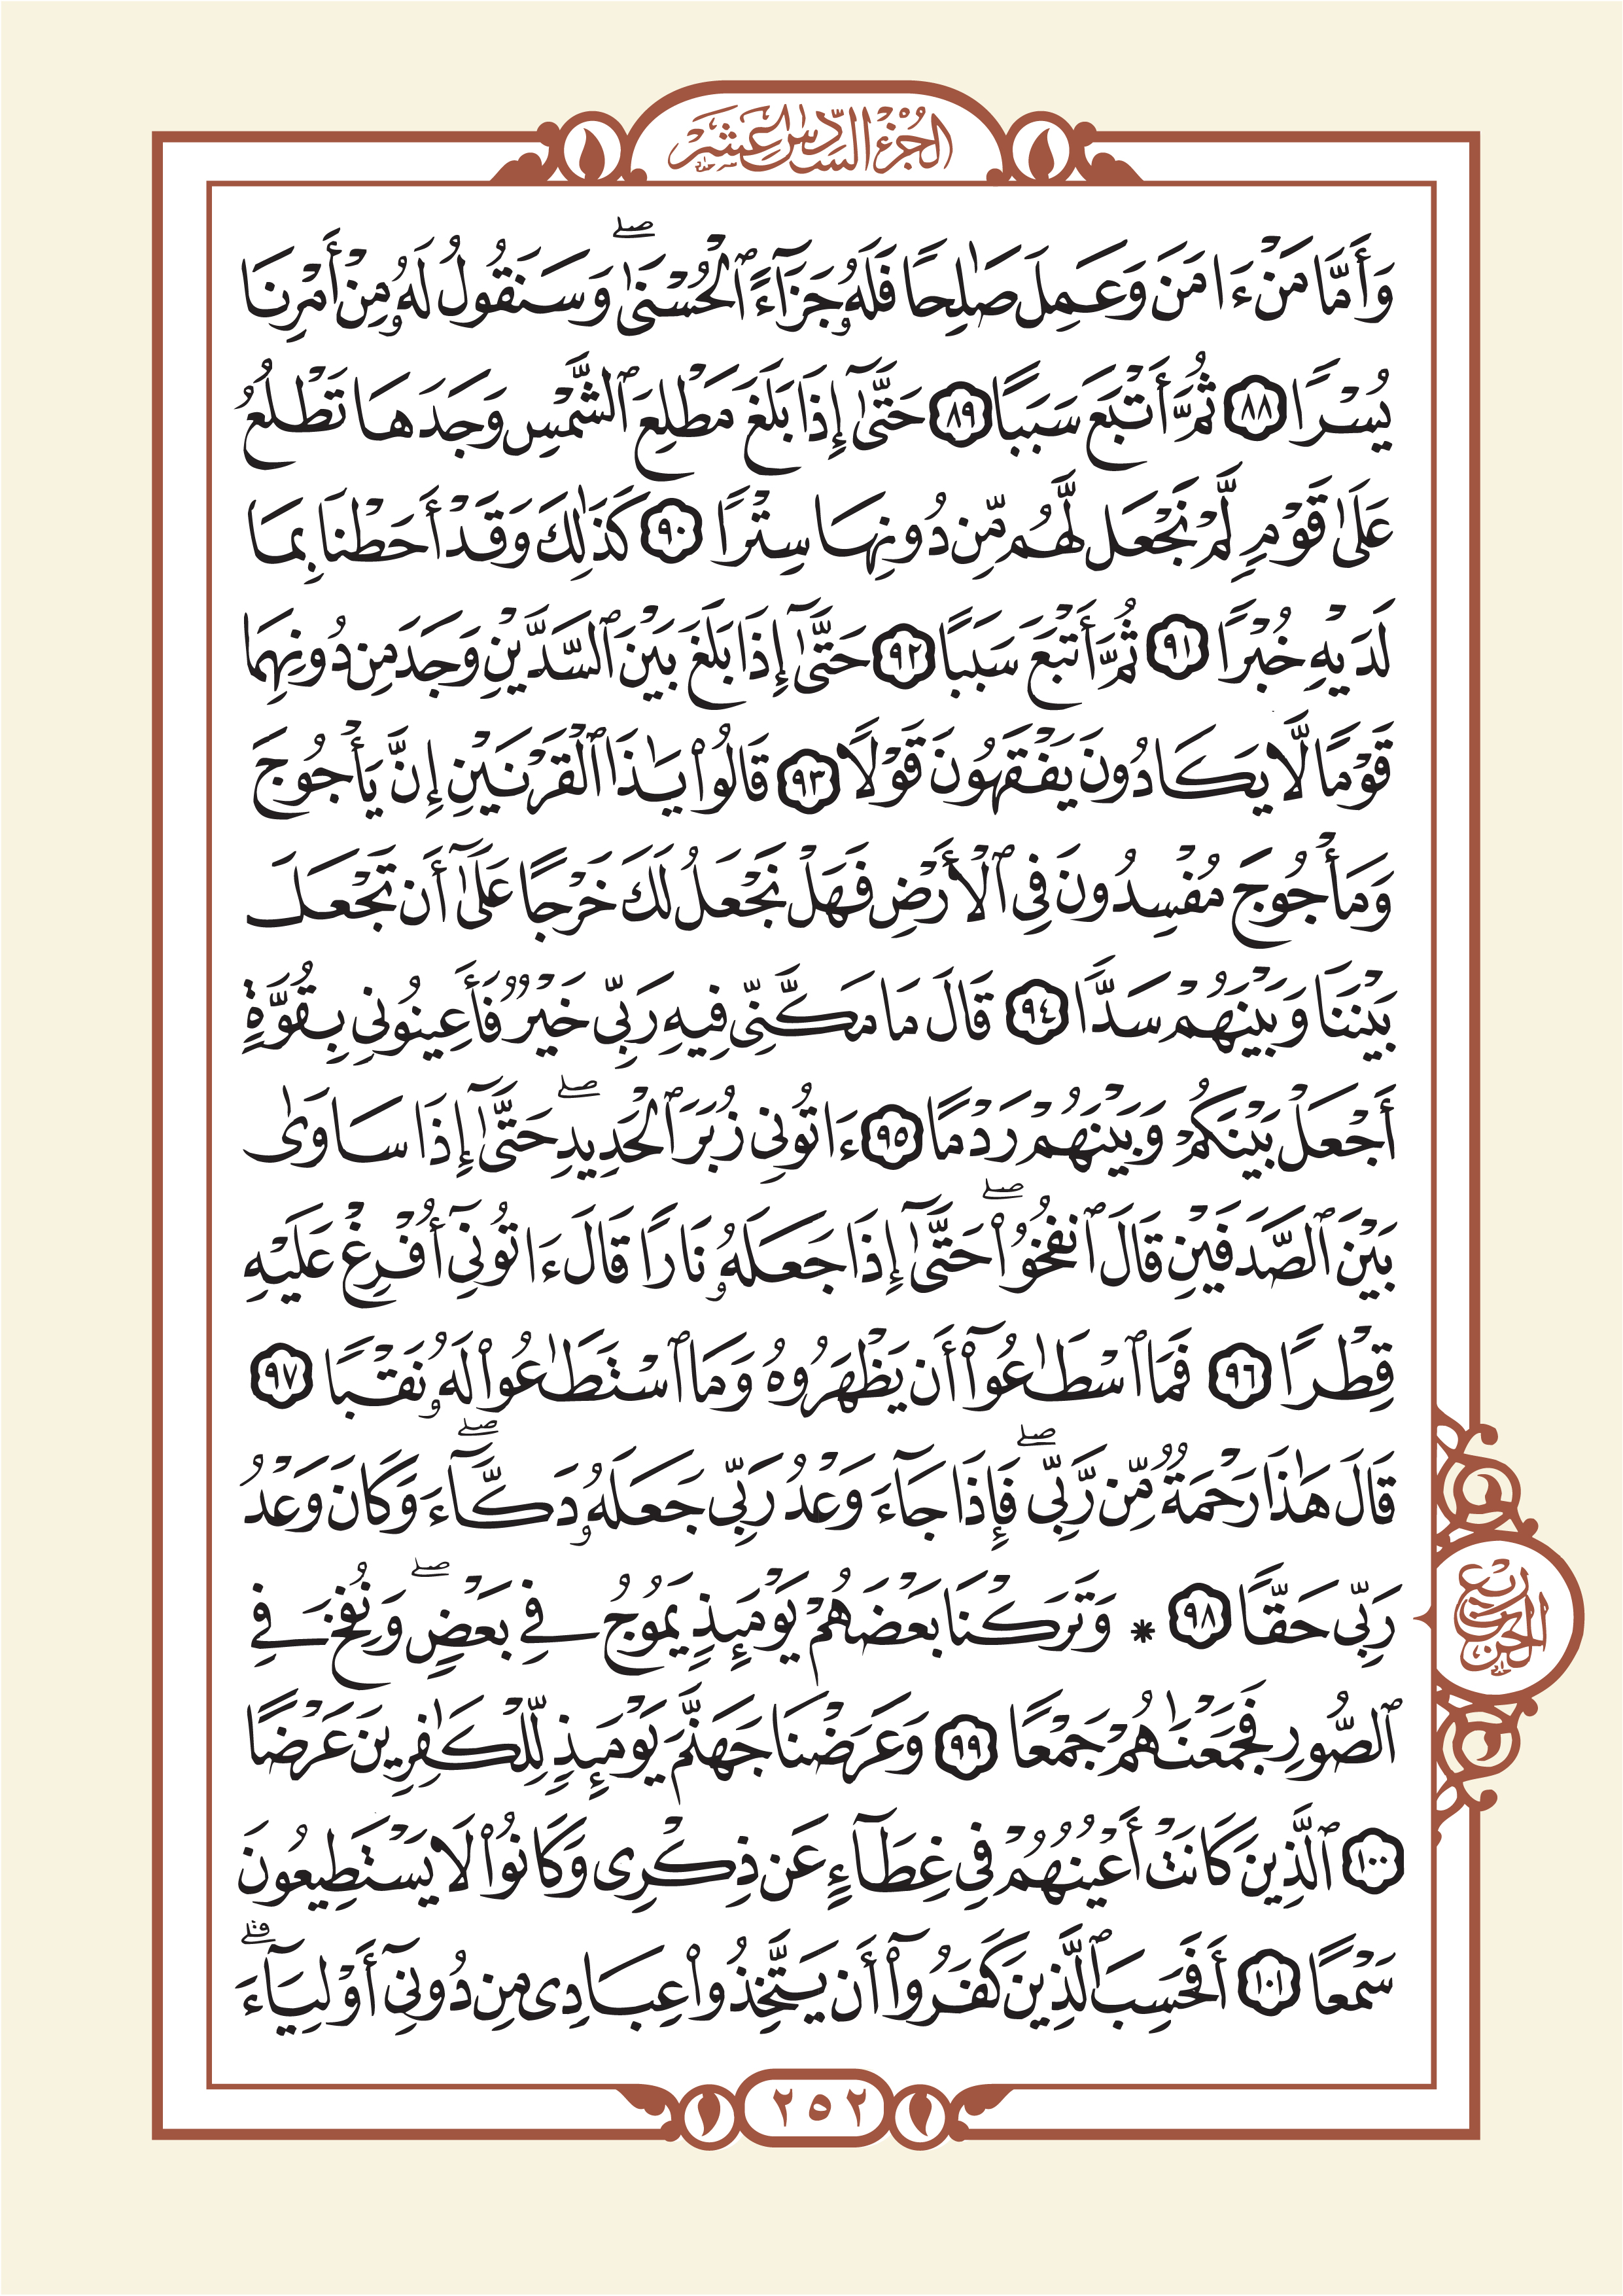 الجزء السادس عشر
وَأَمَّا مَنْ ءَامَنَ وَعَمِلَ صَٰلِحًا فَلَهُۥ جَزَآءً ٱلْحُسْنَىٰ ۖ وَسَنَقُولُ لَهُۥ مِنْ أَمْرِنَا
يُسْرًا ٨٨ ثُمَّ أَتْبَعَ سَبَبًا ٨٩ حَتَّىٰٓ إِذَا بَلَغَ مَطْلِعَ ٱلشَّمْسِ وَجَدَهَا تَطْلُعُ
عَلَىٰ قَوْمٍ لَّمْ نَجْعَل لَّهُم مِّن دُونِهَا سِتْرًا ٩٠ كَذَٰلِكَ وَقَدْ أَحَطْنَا بِمَا
لَدَيْهِ خُبْرًا ٩١ ثُمَّ أَتْبَعَ سَبَبًا ٩٢ حَتَّىٰٓ إِذَا بَلَغَ بَيْنَ ٱلسَّدَّيْنِ وَجَدَ مِن دُونِهِمَا
قَوْمًا لَّا يَكَادُونَ يَفْقَهُونَ قَوْلًا ٩٣ قَالُوا۟ يَٰذَا ٱلْقَرْنَيْنِ إِنَّ يَأْجُوجَ
وَمَأْجُوجَ مُفْسِدُونَ فِى ٱلْأَرْضِ فَهَلْ نَجْعَلُ لَكَ خَرْجًا عَلَىٰٓ أَن تَجْعَلَ
بَيْنَنَا وَبَيْنَهُمْ سَدًّا ٩٤ قَالَ مَا مَكَّنِّى فِيهِ رَبِّى خَيْرٌ فَأَعِينُونِى بِقُوَّةٍ
أَجْعَلْ بَيْنَكُمْ وَبَيْنَهُمْ رَدْمًا ٩٥ ءَاتُونِى زُبَرَ ٱلْحَدِيدِ ۖ حَتَّىٰٓ إِذَا سَاوَىٰ
بَيْنَ ٱلصَّدَفَيْنِ قَالَ ٱنفُخُوا۟ ۖ حَتَّىٰٓ إِذَا جَعَلَهُۥ نَارًا قَالَ ءَاتُونِىٓ أُفْرِغْ عَلَيْهِ
قِطْرًا ٩٦ فَمَا ٱسْطَٰعُوٓا۟ أَن يَظْهَرُوهُ وَمَا ٱسْتَطَٰعُوا۟ لَهُۥ نَقْبًا ٩٧
قَالَ هَٰذَا رَحْمَةٌ مِّن رَّبِّى ۖ فَإِذَا جَآءَ وَعْدُ رَبِّى جَعَلَهُۥ دَكَّآءَ ۖ وَكَانَ وَعْدُ
رَبِّى حَقًّا ٩٨ * وَتَرَكْنَا بَعْضَهُمْ يَوْمَئِذٍ يَمُوجُ فِى بَعْضٍ ۖ وَنُفِخَ فِى
ربع الحزب
ٱلصُّورِ فَجَمَعْنَٰهُمْ جَمْعًا ٩٩ وَعَرَضْنَا جَهَنَّمَ يَوْمَئِذٍ لِّلْكَٰفِرِينَ عَرْضًا
١٠٠ ٱلَّذِينَ كَانَتْ أَعْيُنُهُمْ فِى غِطَآءٍ عَن ذِكْرِى وَكَانُوا۟ لَا يَسْتَطِيعُونَ
سَمْعًا ١٠١ أَفَحَسِبَ ٱلَّذِينَ كَفَرُوٓا۟ أَن يَتَّخِذُوا۟ عِبَادِى مِن دُونِىٓ أَوْلِيَآءَ ۗ
٢٥٢